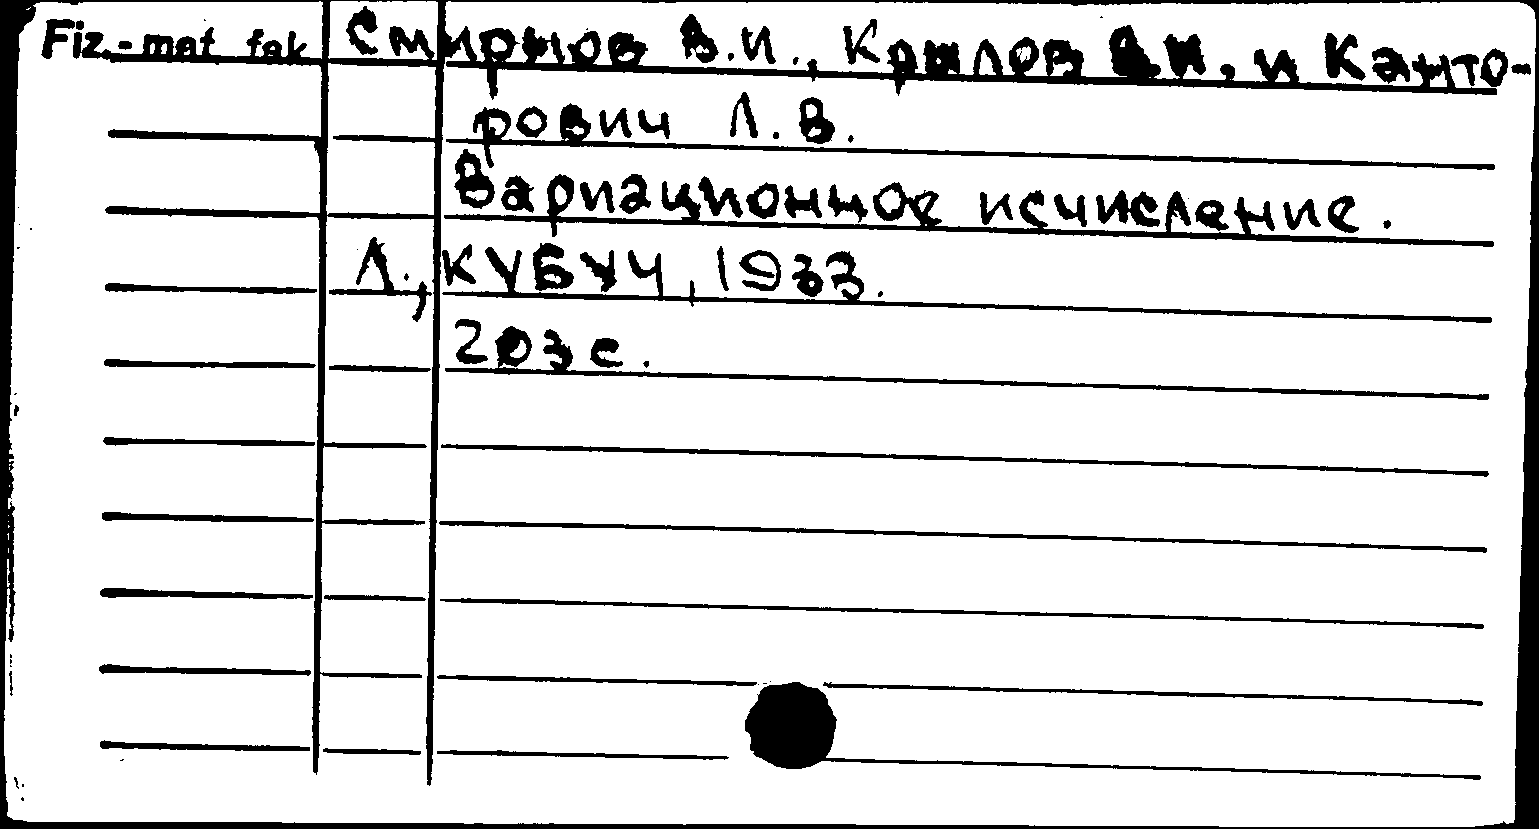 Fiz.-mat fak Смирнов В.И., Крылов В.И., и Канто-
рович Л.В.
Вариационное исчисление.
Л., КУБУЧ, 1933.
203 с.